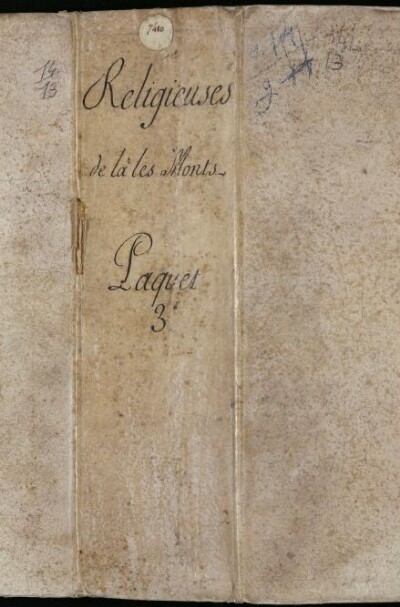 14
13
Religieuses
de là les Monts
Paquet
3
13